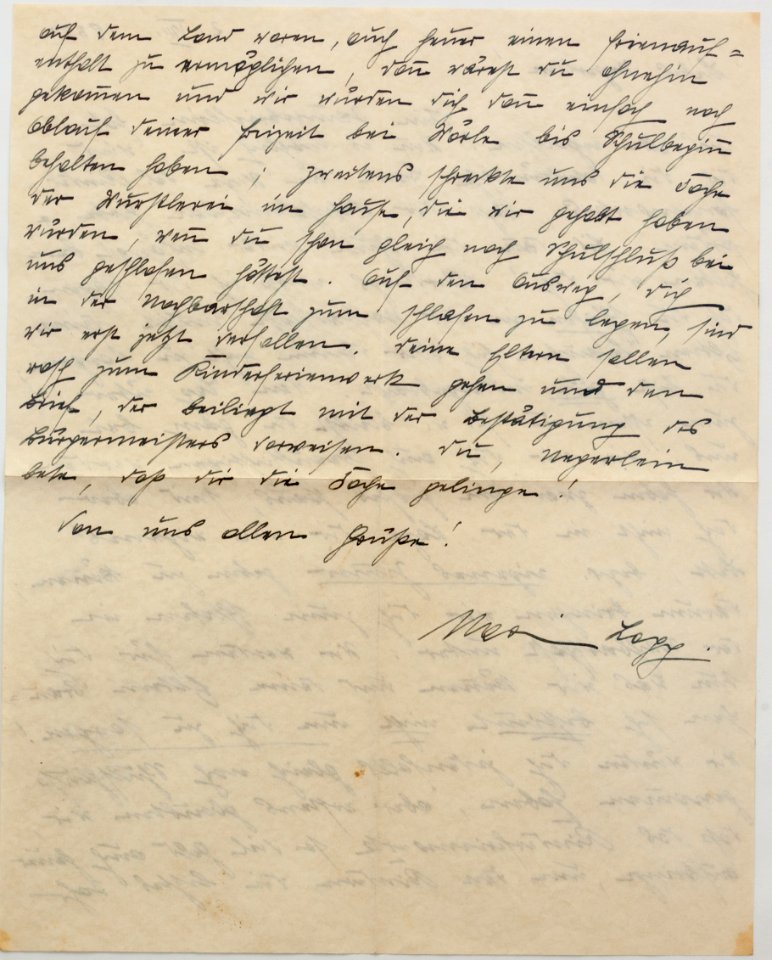 auf dem Land waren, auch heuer einen Ferienauf=
enthalt zu ermöglichen, dann wärest du ohnehin
gekommen und wir würden dich dann einfach nach
Ablauf deiner Freizeit bei Wörle bis Schulbeginn
behalten haben; zweitens schreckte uns die Sache
der Wurstlerei im Hause, die wir gehabt haben
würden, wenn du schon gleich nach Schulschluß bei
uns geschlafen hättest. Auf den Ausweg, dich
in der Nachbarschaft zum schlafen zu legen, sind
wir erst jetzt verfallen. Deine Eltern sollen
rasch zum Kinderferienwerk gehen und den
Brief, der beiliegt mit der Bestätigung des
Bürgermeisters vorweisen. Du, Negerlein
bete, daß dir die Sache gelinge!
Von uns allen Grüße!